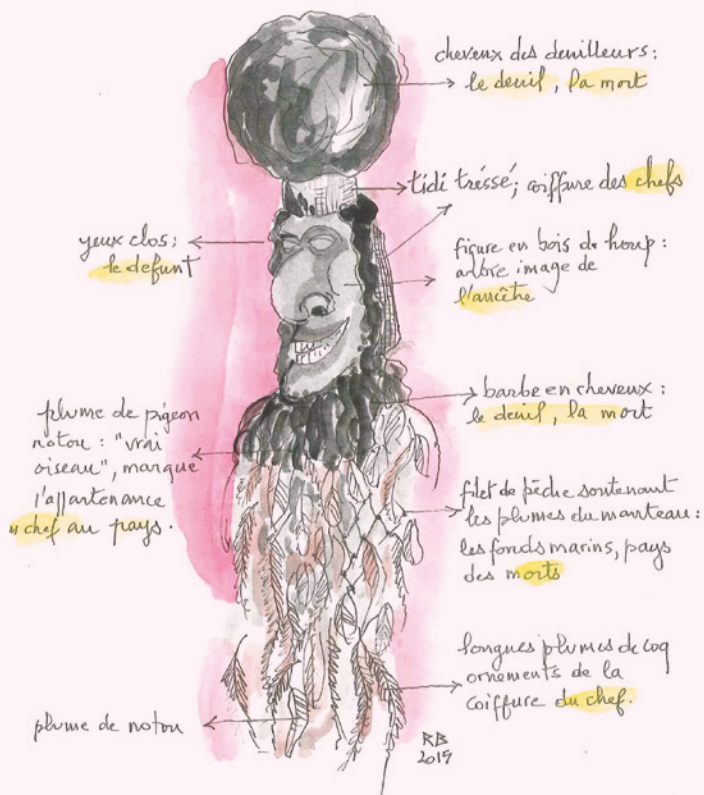 cheveux des deuilleurs :
le deuil, la mort
tidi tréssé ; coiffure des chefs
yeux clos :
le defunt
figure en bois de houp :
arbre image de
l'ancêtre
barbe en cheveux :
le deuil, la mort
plume de pigeon
notou : "vrai
oiseau", marque
l'appartenance
u chef au pays.
filet de pêche soutenant
les plumes du manteau :
les fonds marins, pays
des morts
longues plumes de coq
ornements de la
coiffure du chef.
plume de notou
RB
2019